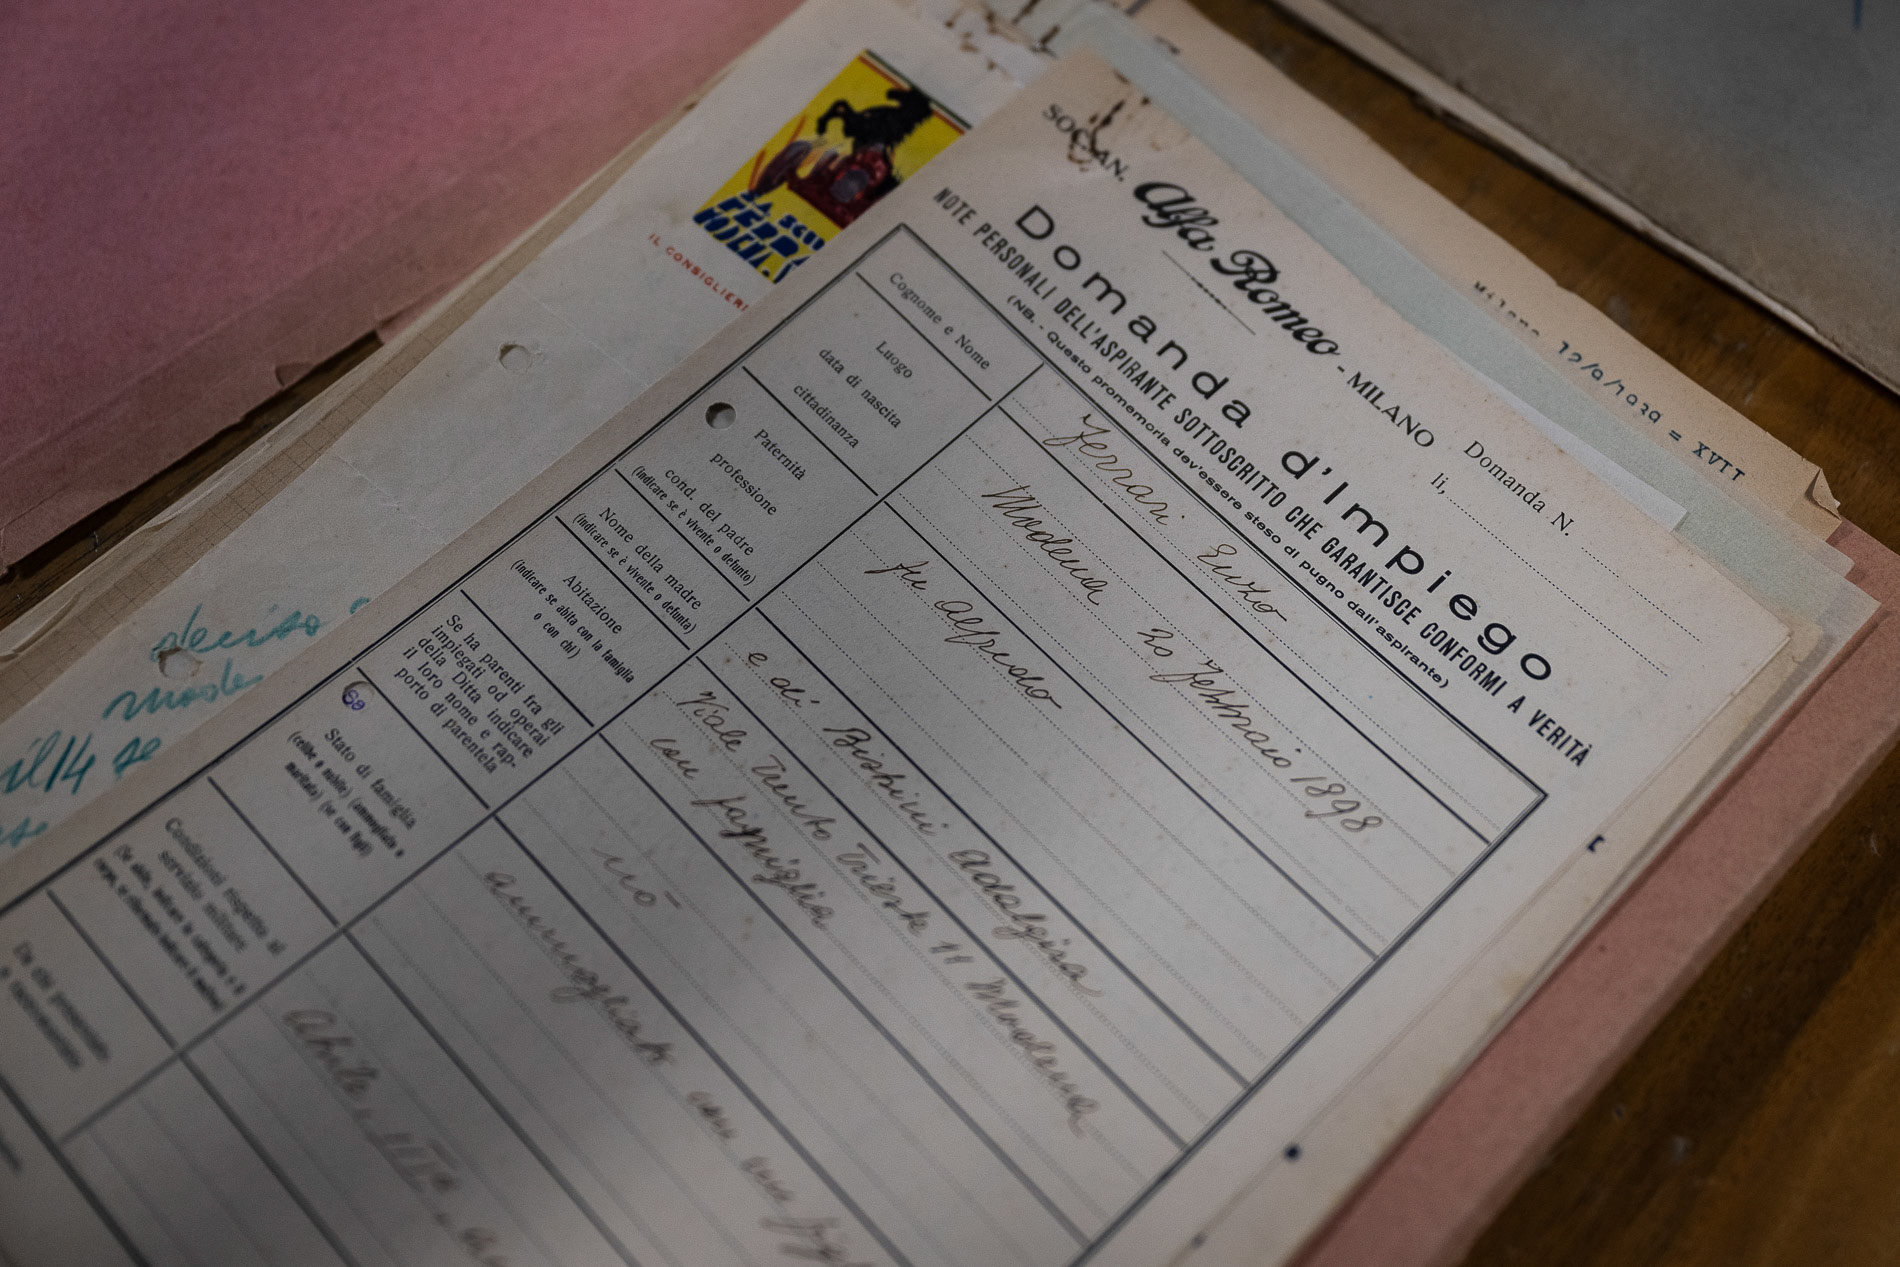 SOC. AN. Alfa Romeo - MILANO
Domanda N.
li,
Domanda d'Impiego
NOTE PERSONALI DELL'ASPIRANTE SOTTOSCRITTO CHE GARANTISCE CONFORMI A VERITÀ
(NB. - Questo promemoria dev'essere steso di pugno dall'aspirante)
Cognome e Nome
Ferrari Enzo
Luogo
data di nascita
cittadinanza
Modena 20 Febbraio 1898
Paternità
professione
cond. del padre
(indicare se è vivente o defunto)
fu Alfredo
Nome della madre
(indicare se è vivente o defunta)
e di Bisbini Adalgisa
Abitazione
(indicare se abita con la famiglia
o con chi)
Viale Trento Trieste 11 Modena
con famiglia
Se ha parenti fra gli
impiegati od operai
della Ditta indicare
il loro nome e rap-
porto di parentela
no
Stato di famiglia
(celibe o nubile) (ammogliato o
maritata) (se con figli)
ammogliato con un
Condizioni rispetto al
servizio militare
Abile
Da chi
Milano 12/9/1939 = XVII
LA SCU
FERRA
MODENA
IL CONSIGLIERE
deciso
mode
il 14 se